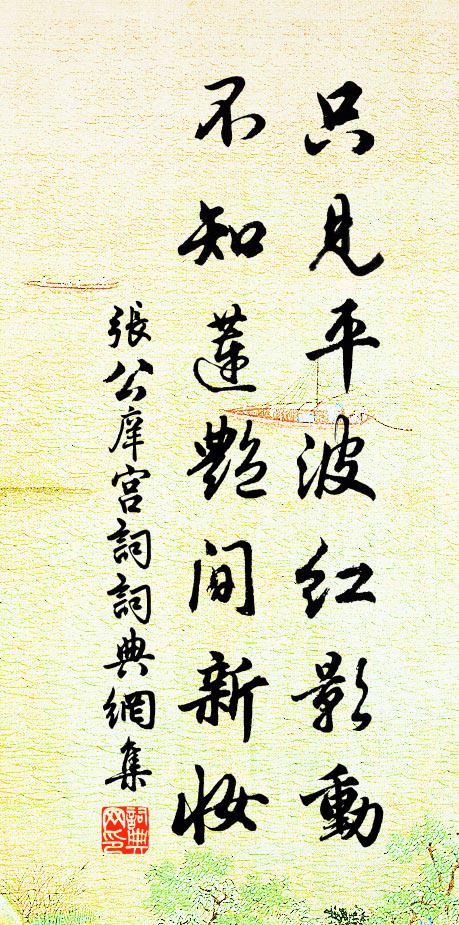 只見平波紅影動
不知蓮艷間新妝
張公庠宮詞詞典網集
詞典网印